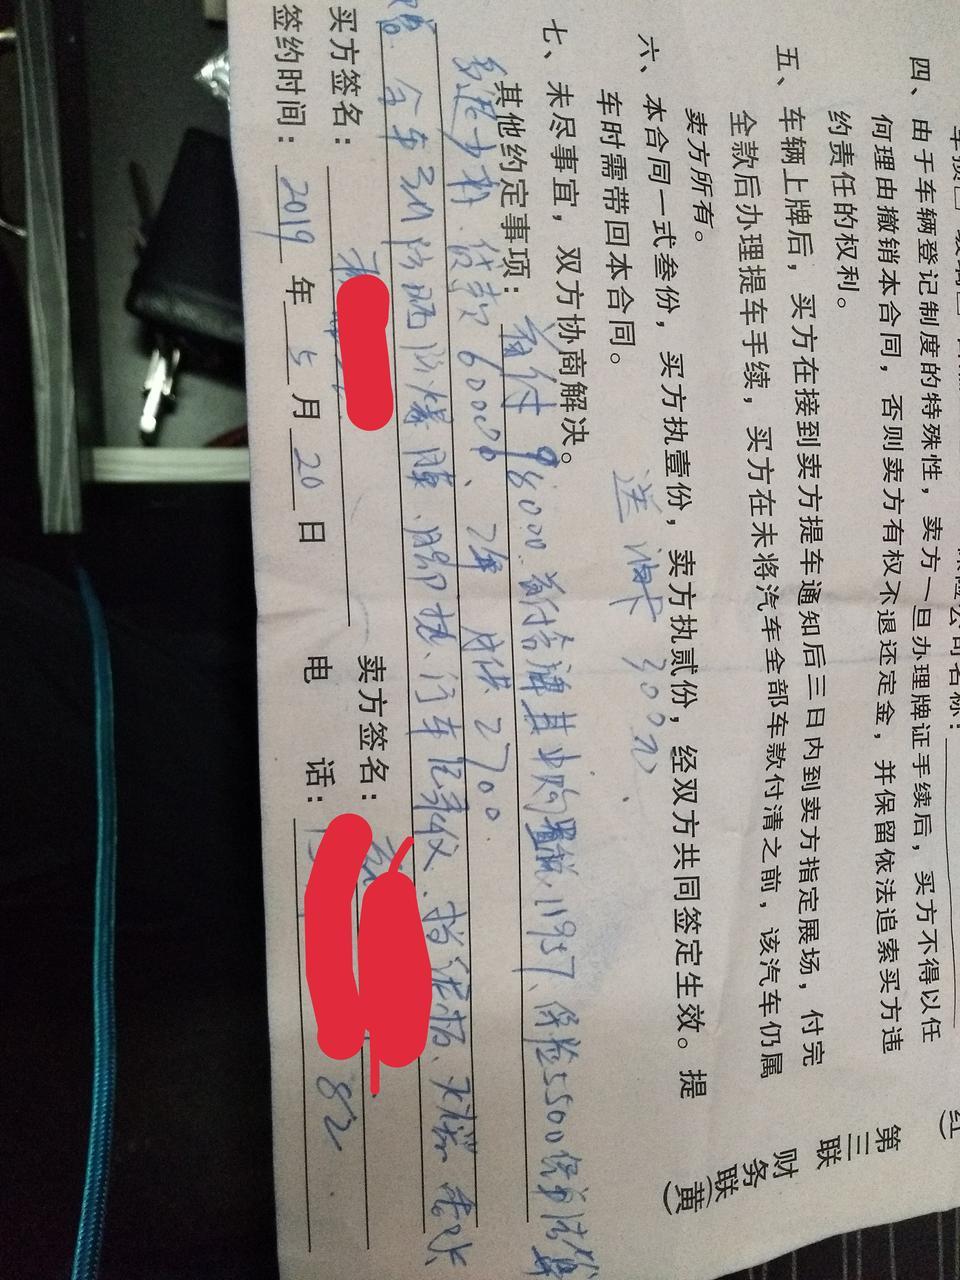 险公司名称：
四、由于车辆登记制度的特殊性，卖方一旦办理牌证手续后，买方不得以任
何理由撤销本合同，否则卖方有权不退还定金，并保留依法追索买方违
约责任的权利。
五、车辆上牌后，买方在接到卖方提车通知后三日内到卖方指定展场，付完
全款后办理提车手续，买方在未将汽车全部车款付清之前，该汽车仍属
卖方所有。
六、本合同一式叁份，买方执壹份，卖方执贰份，经双方共同签定生效。提
车时需带回本合同。
送油卡300元
七、未尽事宜，双方协商解决。
其他约定事项：首付98000.首付含牌其中购置税11957、保险5500保
多退少补.贷款60000、2年月供2700.
赠.全车3M防晒防爆膜.脚垫.行车记录仪.挡泥板.香水
买方签名：
卖方签名：
签约时间：2019年5月20日
电 话：82
第三联
财务联
（黄）
（红